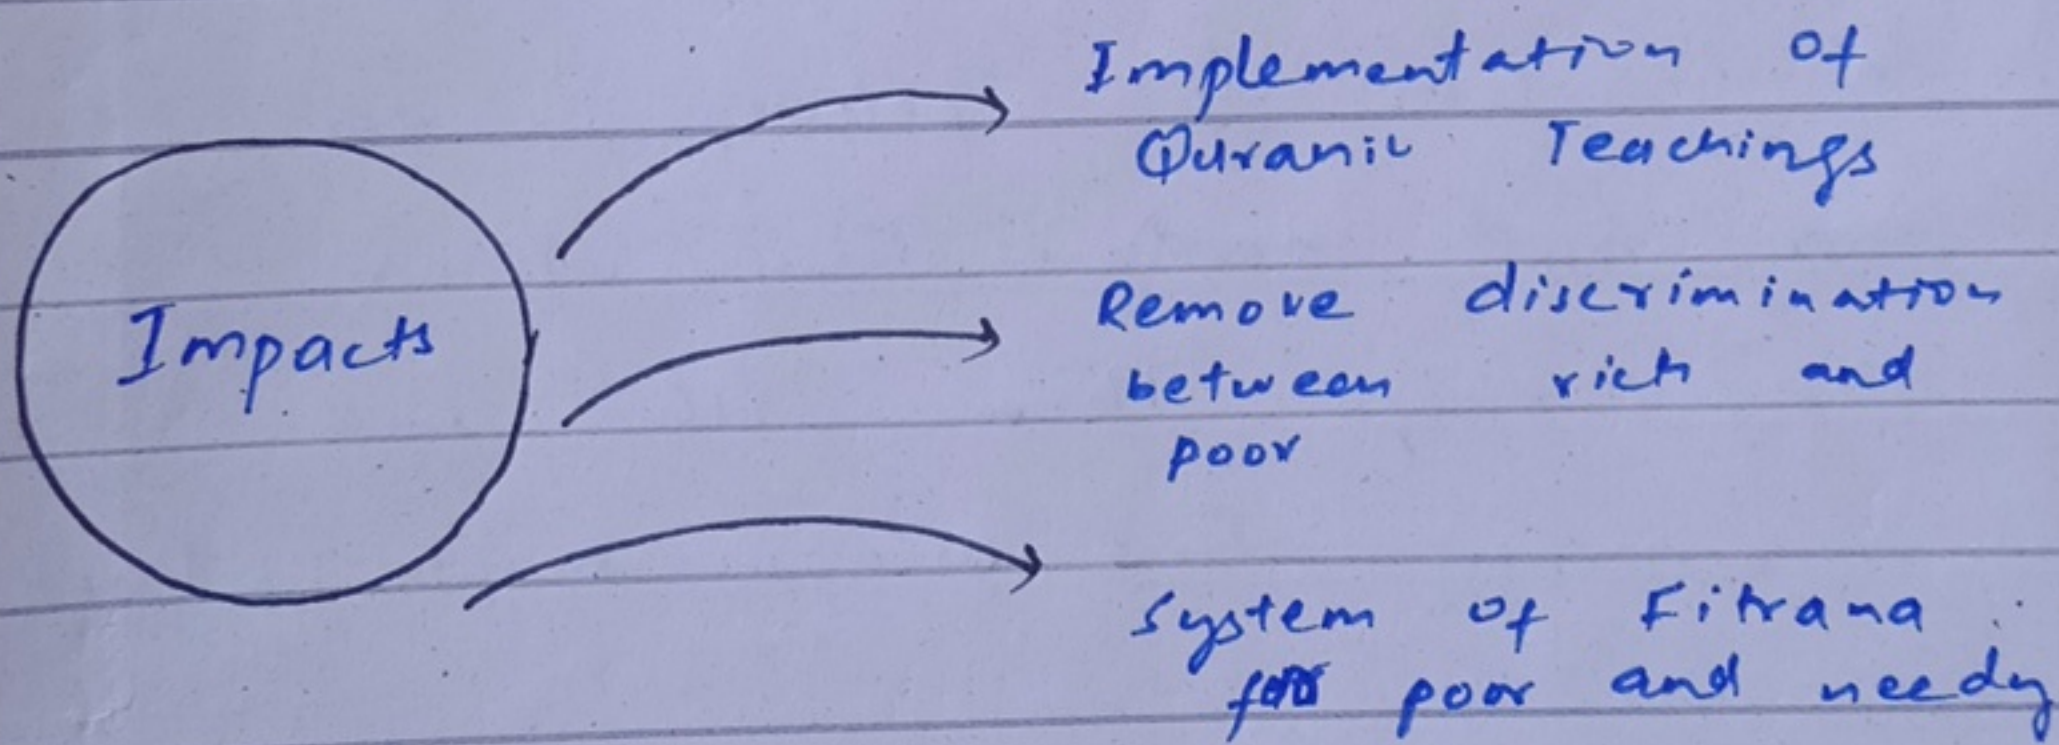 Impacts
Implementation of
Quranic Teachings
Remove discrimination
between rich and
poor
System of Fitrana
for poor and needy